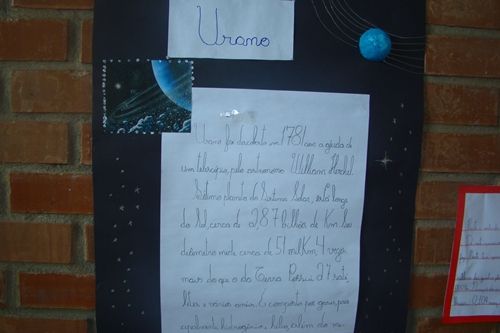 Urano
Urano foi descoberto em 1781 com a ajuda de
um telescópio, pelo astrônomo William Herchel.
Sétimo planeta do Sistema Solar, está longe
do Sol, cerca de 2,87 bilhões de Km. Seu
diâmetro mede cerca de 51 mil Km, 4 vezes
mais do que o da Terra. Possui 27 saté
lites e vários anéis. É composto por gases, prin
cipalmente hidrogênio, hélio, além de me